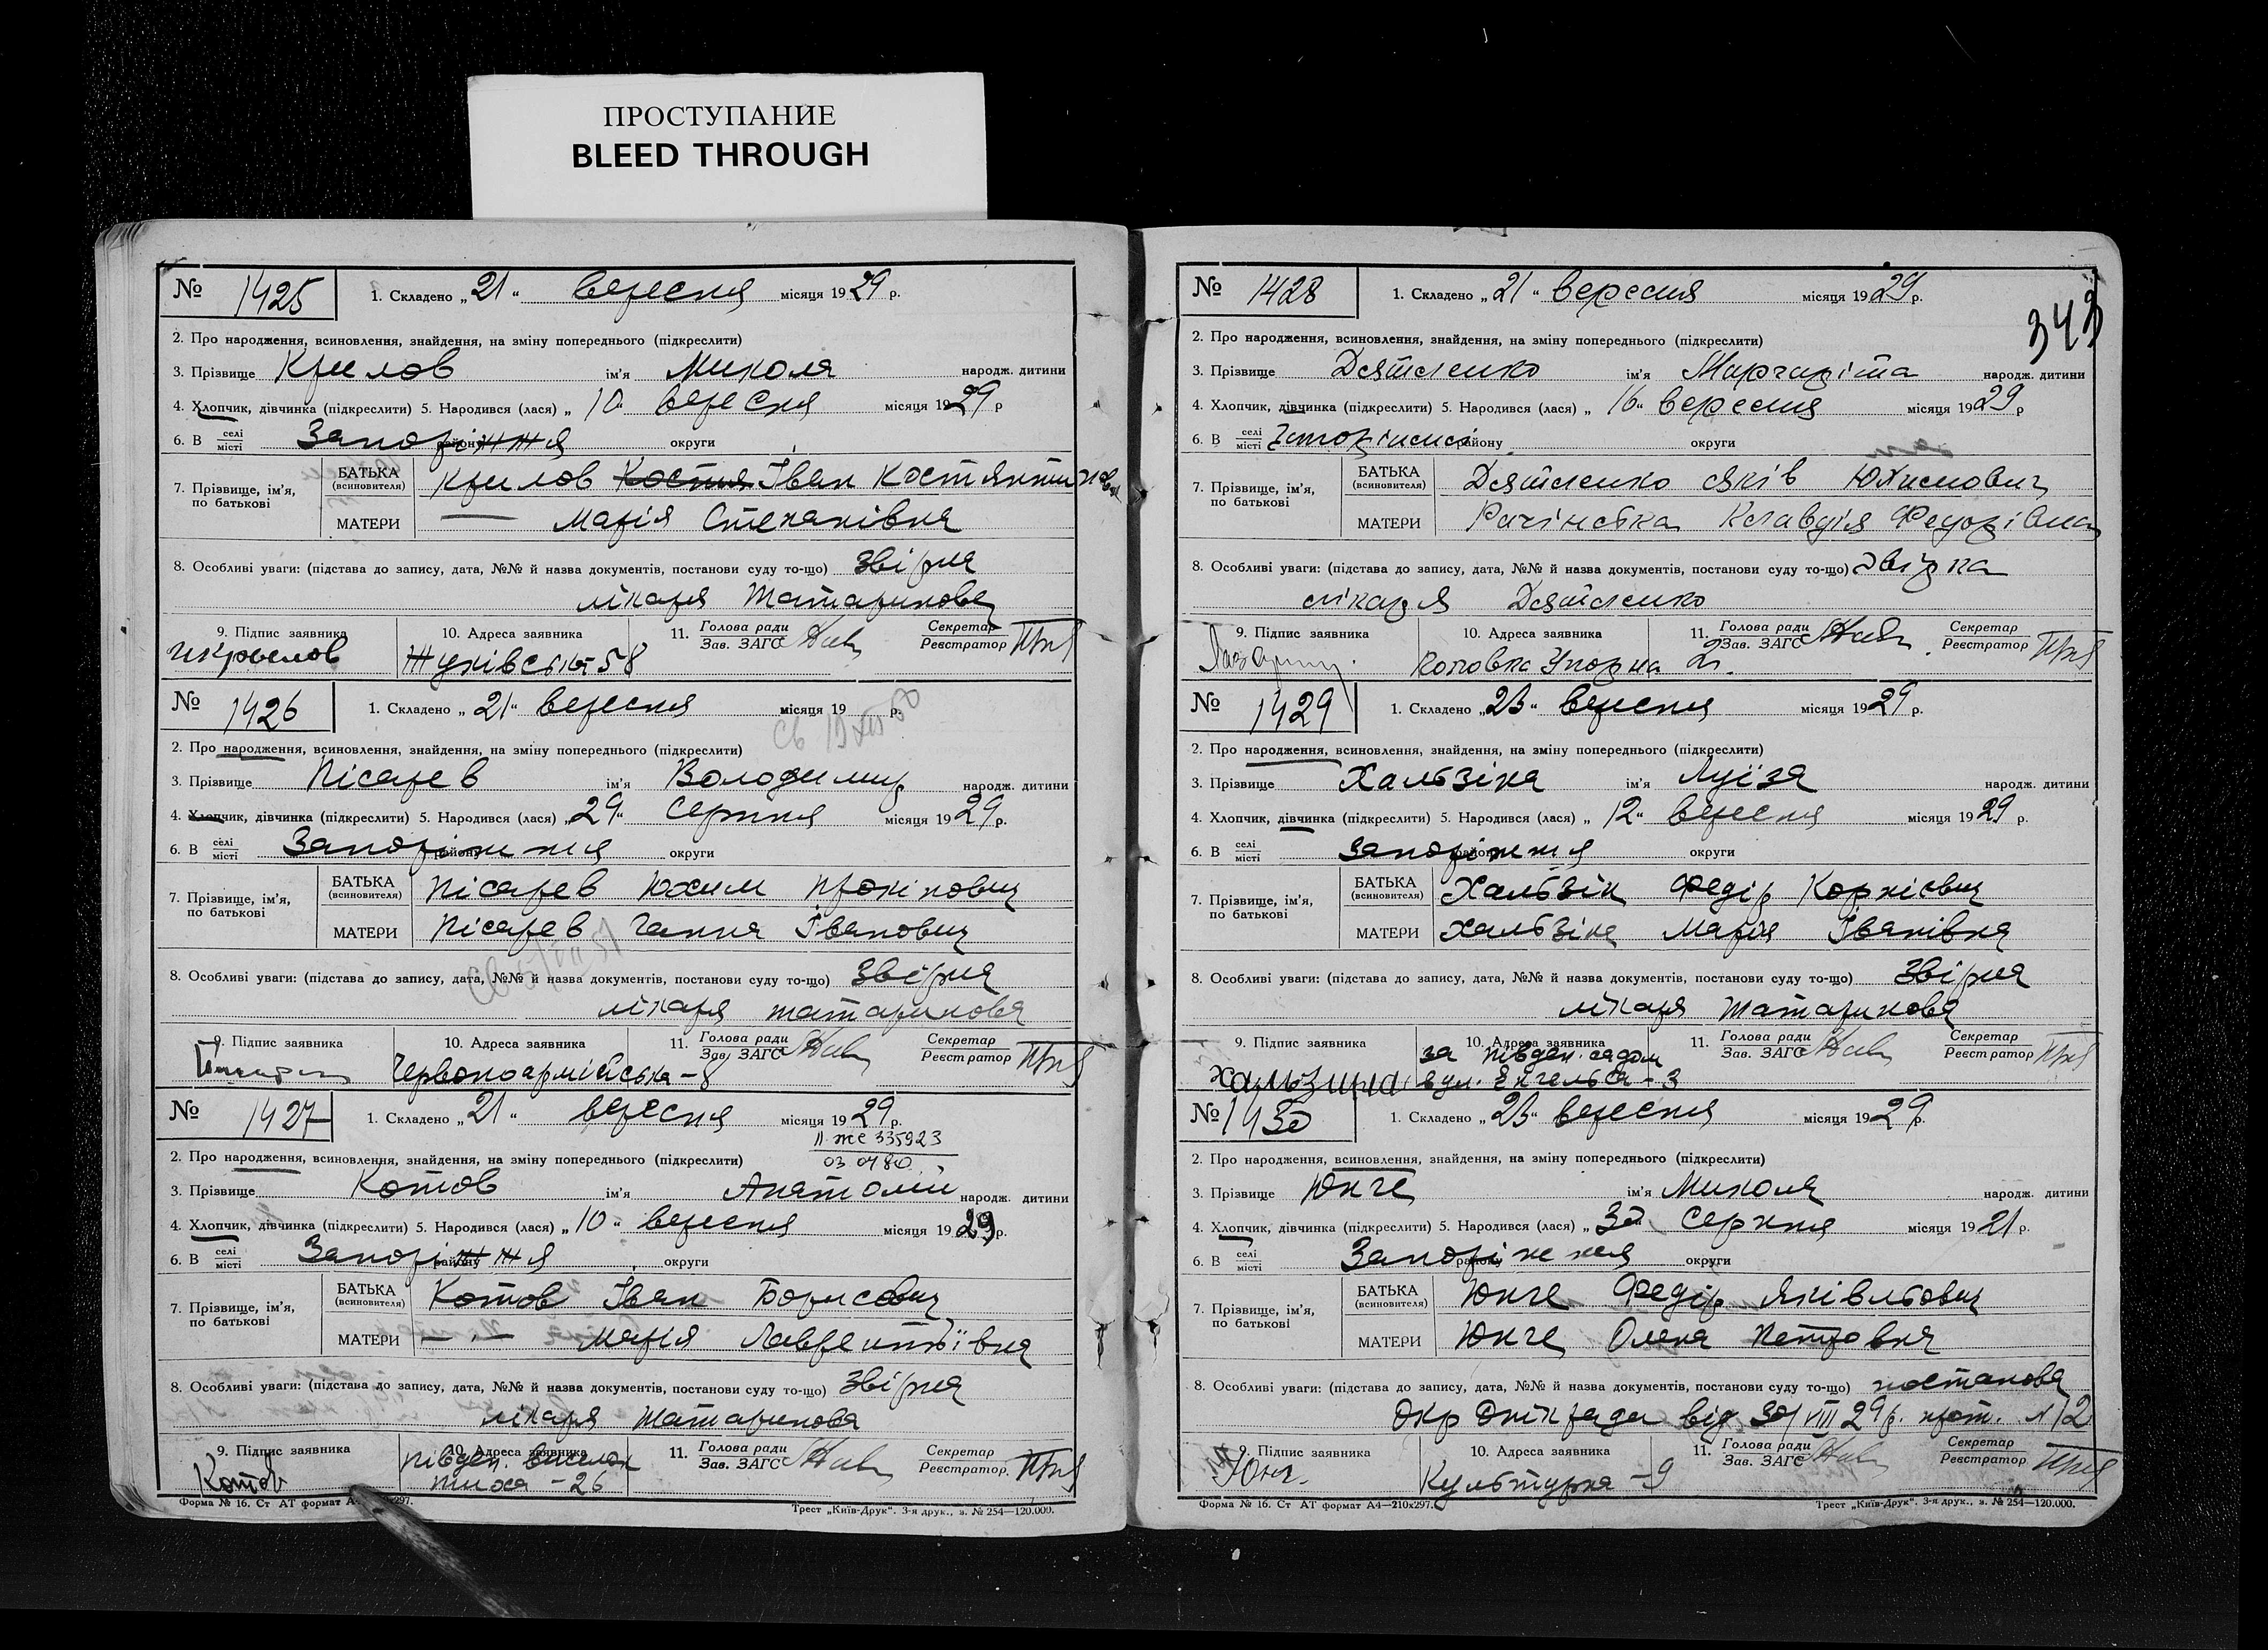 ПРОСТУПАНИЕ
BLEED THROUGH
№ 1425 1. Складено „21“ вересня місяця 1929 р.
2. Про народження, всиновлення, знайдення, на зміну попереднього (підкреслити)
3. Прізвище Крилов ім'я Микола народж. дитини
4. Хлопчик, дівчинка (підкреслити) 5. Народився (лася) „10“ вересня місяця 1929 р
6. В селі місті Запоріжжя району округи
7. Прізвище, ім'я, по батькові
БАТЬКА (всиновителя) Крилов Костян Іван Костянтинов
МАТЕРИ — Марія Степанівна
8. Особливі уваги: (підстава до запису, дата, №№ й назва документів, постанови суду то-що) Звірка
лікаря Татаринова
9. Підпис заявника 10. Адреса заявника 11. Голова ради Зав. ЗАГС Секретар Реєстратор
Икрылов Жуківська 58
№ 1426 1. Складено „21“ вересня місяця 19 р.
2. Про народження, всиновлення, знайдення, на зміну попереднього (підкреслити)
3. Прізвище Пісарев ім'я Володимир народж. дитини
4. Хлопчик, дівчинка (підкреслити) 5. Народився (лася) „29“ серпня місяця 1929 р.
6. В селі місті Запоріжжя району округи
7. Прізвище, ім'я, по батькові
БАТЬКА (всиновителя) Пісарев Юхим Прокіпович
МАТЕРИ Пісарев Ганна Іванович
8. Особливі уваги: (підстава до запису, дата, №№ й назва документів, постанови суду то-що) Звірка
лікаря Татаринова
9. Підпис заявника 10. Адреса заявника 11. Голова ради Зав. ЗАГС Секретар Реєстратор
Червоноармійська-8
№ 1427 1. Складено „21“ вересня місяця 1929 р.
II же 335923
03 04 80
2. Про народження, всиновлення, знайдення, на зміну попереднього (підкреслити)
3. Прізвище Котов ім'я Анатолій народж. дитини
4. Хлопчик, дівчинка (підкреслити) 5. Народився (лася) „10“ вересня місяця 1929 р.
6. В селі місті Запоріжжя району округи
7. Прізвище, ім'я, по батькові
БАТЬКА (всиновителя) Котов Іван Борисович
МАТЕРИ —·— Марія Лаврентьївна
8. Особливі уваги: (підстава до запису, дата, №№ й назва документів, постанови суду то-що) Звірка
лікаря Татаринова
9. Підпис заявника 10. Адреса заявника 11. Голова ради Зав. ЗАГС Секретар Реєстратор
Котов півден. виселок
тиха - 26
Форма № 16. Ст АТ формат А4—210х297. Трест „Київ-Друк“. 3-я друк., з. № 254—120.000.
343
№ 1428 1. Складено „21“ вересня місяця 1929 р.
2. Про народження, всиновлення, знайдення, на зміну попереднього (підкреслити)
3. Прізвище Дятленко ім'я Маргаріта народж. дитини
4. Хлопчик, дівчинка (підкреслити) 5. Народився (лася) „16“ вересня місяця 1929 р
6. В селі місті району округи
7. Прізвище, ім'я, по батькові
БАТЬКА (всиновителя) Дятленко Яків Юхимович
МАТЕРИ Рачінська Клавдія Федорівна
8. Особливі уваги: (підстава до запису, дата, №№ й назва документів, постанови суду то-що) Звірка
лікаря Дятленко
9. Підпис заявника 10. Адреса заявника 11. Голова ради Зав. ЗАГС Секретар Реєстратор
21.
№ 1429 1. Складено „23“ вересня місяця 1929 р.
2. Про народження, всиновлення, знайдення, на зміну попереднього (підкреслити)
3. Прізвище Хальзіна ім'я Луїза народж. дитини
4. Хлопчик, дівчинка (підкреслити) 5. Народився (лася) „12“ вересня місяця 1929 р.
6. В селі місті Запоріжжя району округи
7. Прізвище, ім'я, по батькові
БАТЬКА (всиновителя) Хальзін Федір Корнієвич
МАТЕРИ Хальзіна Марія Іванівна
8. Особливі уваги: (підстава до запису, дата, №№ й назва документів, постанови суду то-що) Звірка
лікаря Татаринова
9. Підпис заявника 10. Адреса заявника 11. Голова ради Зав. ЗАГС Секретар Реєстратор
за півден. садом
Хальзина вул. Енгельса - 3
№ 1430 1. Складено „23“ вересня місяця 1929 р.
2. Про народження, всиновлення, знайдення, на зміну попереднього (підкреслити)
3. Прізвище Юнге ім'я Микола народж. дитини
4. Хлопчик, дівчинка (підкреслити) 5. Народився (лася) „30“ серпня місяця 1921 р.
6. В селі місті Запоріжжя району округи
7. Прізвище, ім'я, по батькові
БАТЬКА (всиновителя) Юнге Федір Яківльович
МАТЕРИ Юнге Олена Петровна
8. Особливі уваги: (підстава до запису, дата, №№ й назва документів, постанови суду то-що) постанова
Окр Опікради від 30/VIII 29 р. прот. №12
9. Підпис заявника 10. Адреса заявника 11. Голова ради Зав. ЗАГС Секретар Реєстратор
Юнг. Культурна - 9
Форма № 16. Ст АТ формат А4—210х297. Трест „Київ-Друк“. 3-я друк., з. № 254—120.000.